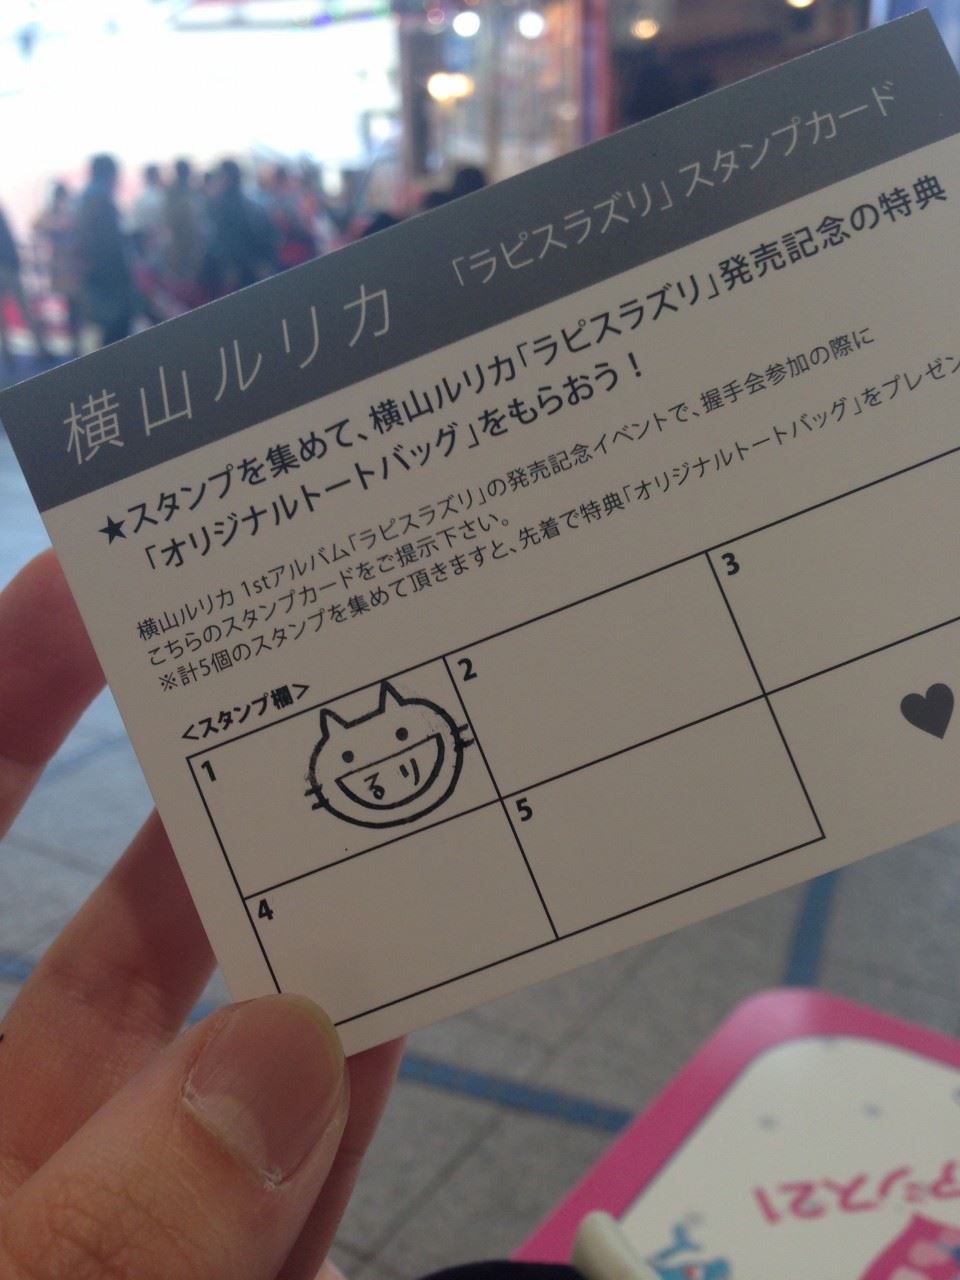 横山ルリカ 「ラピスラズリ」スタンプカード
★スタンプを集めて、横山ルリカ「ラピスラズリ」発売記念の特典
「オリジナルトートバッグ」をもらおう！
横山ルリカ 1stアルバム「ラピスラズリ」の発売記念イベントで、握手会参加の際に
こちらのスタンプカードをご提示下さい。
※計5個のスタンプを集めて頂きますと、先着で特典「オリジナルトートバッグ」をプレゼン
<スタンプ欄>
1
るり
2
3
4
5